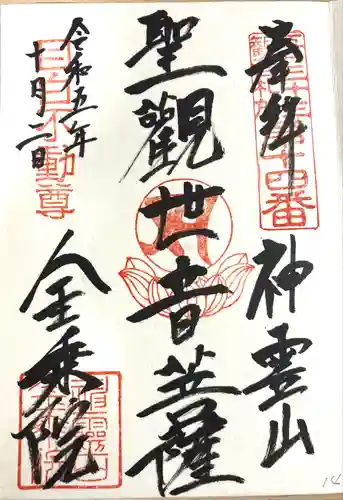 奉拜
神霊山
聖觀世音菩薩
令和五年
十月二日
金乗院
目白不動尊
14